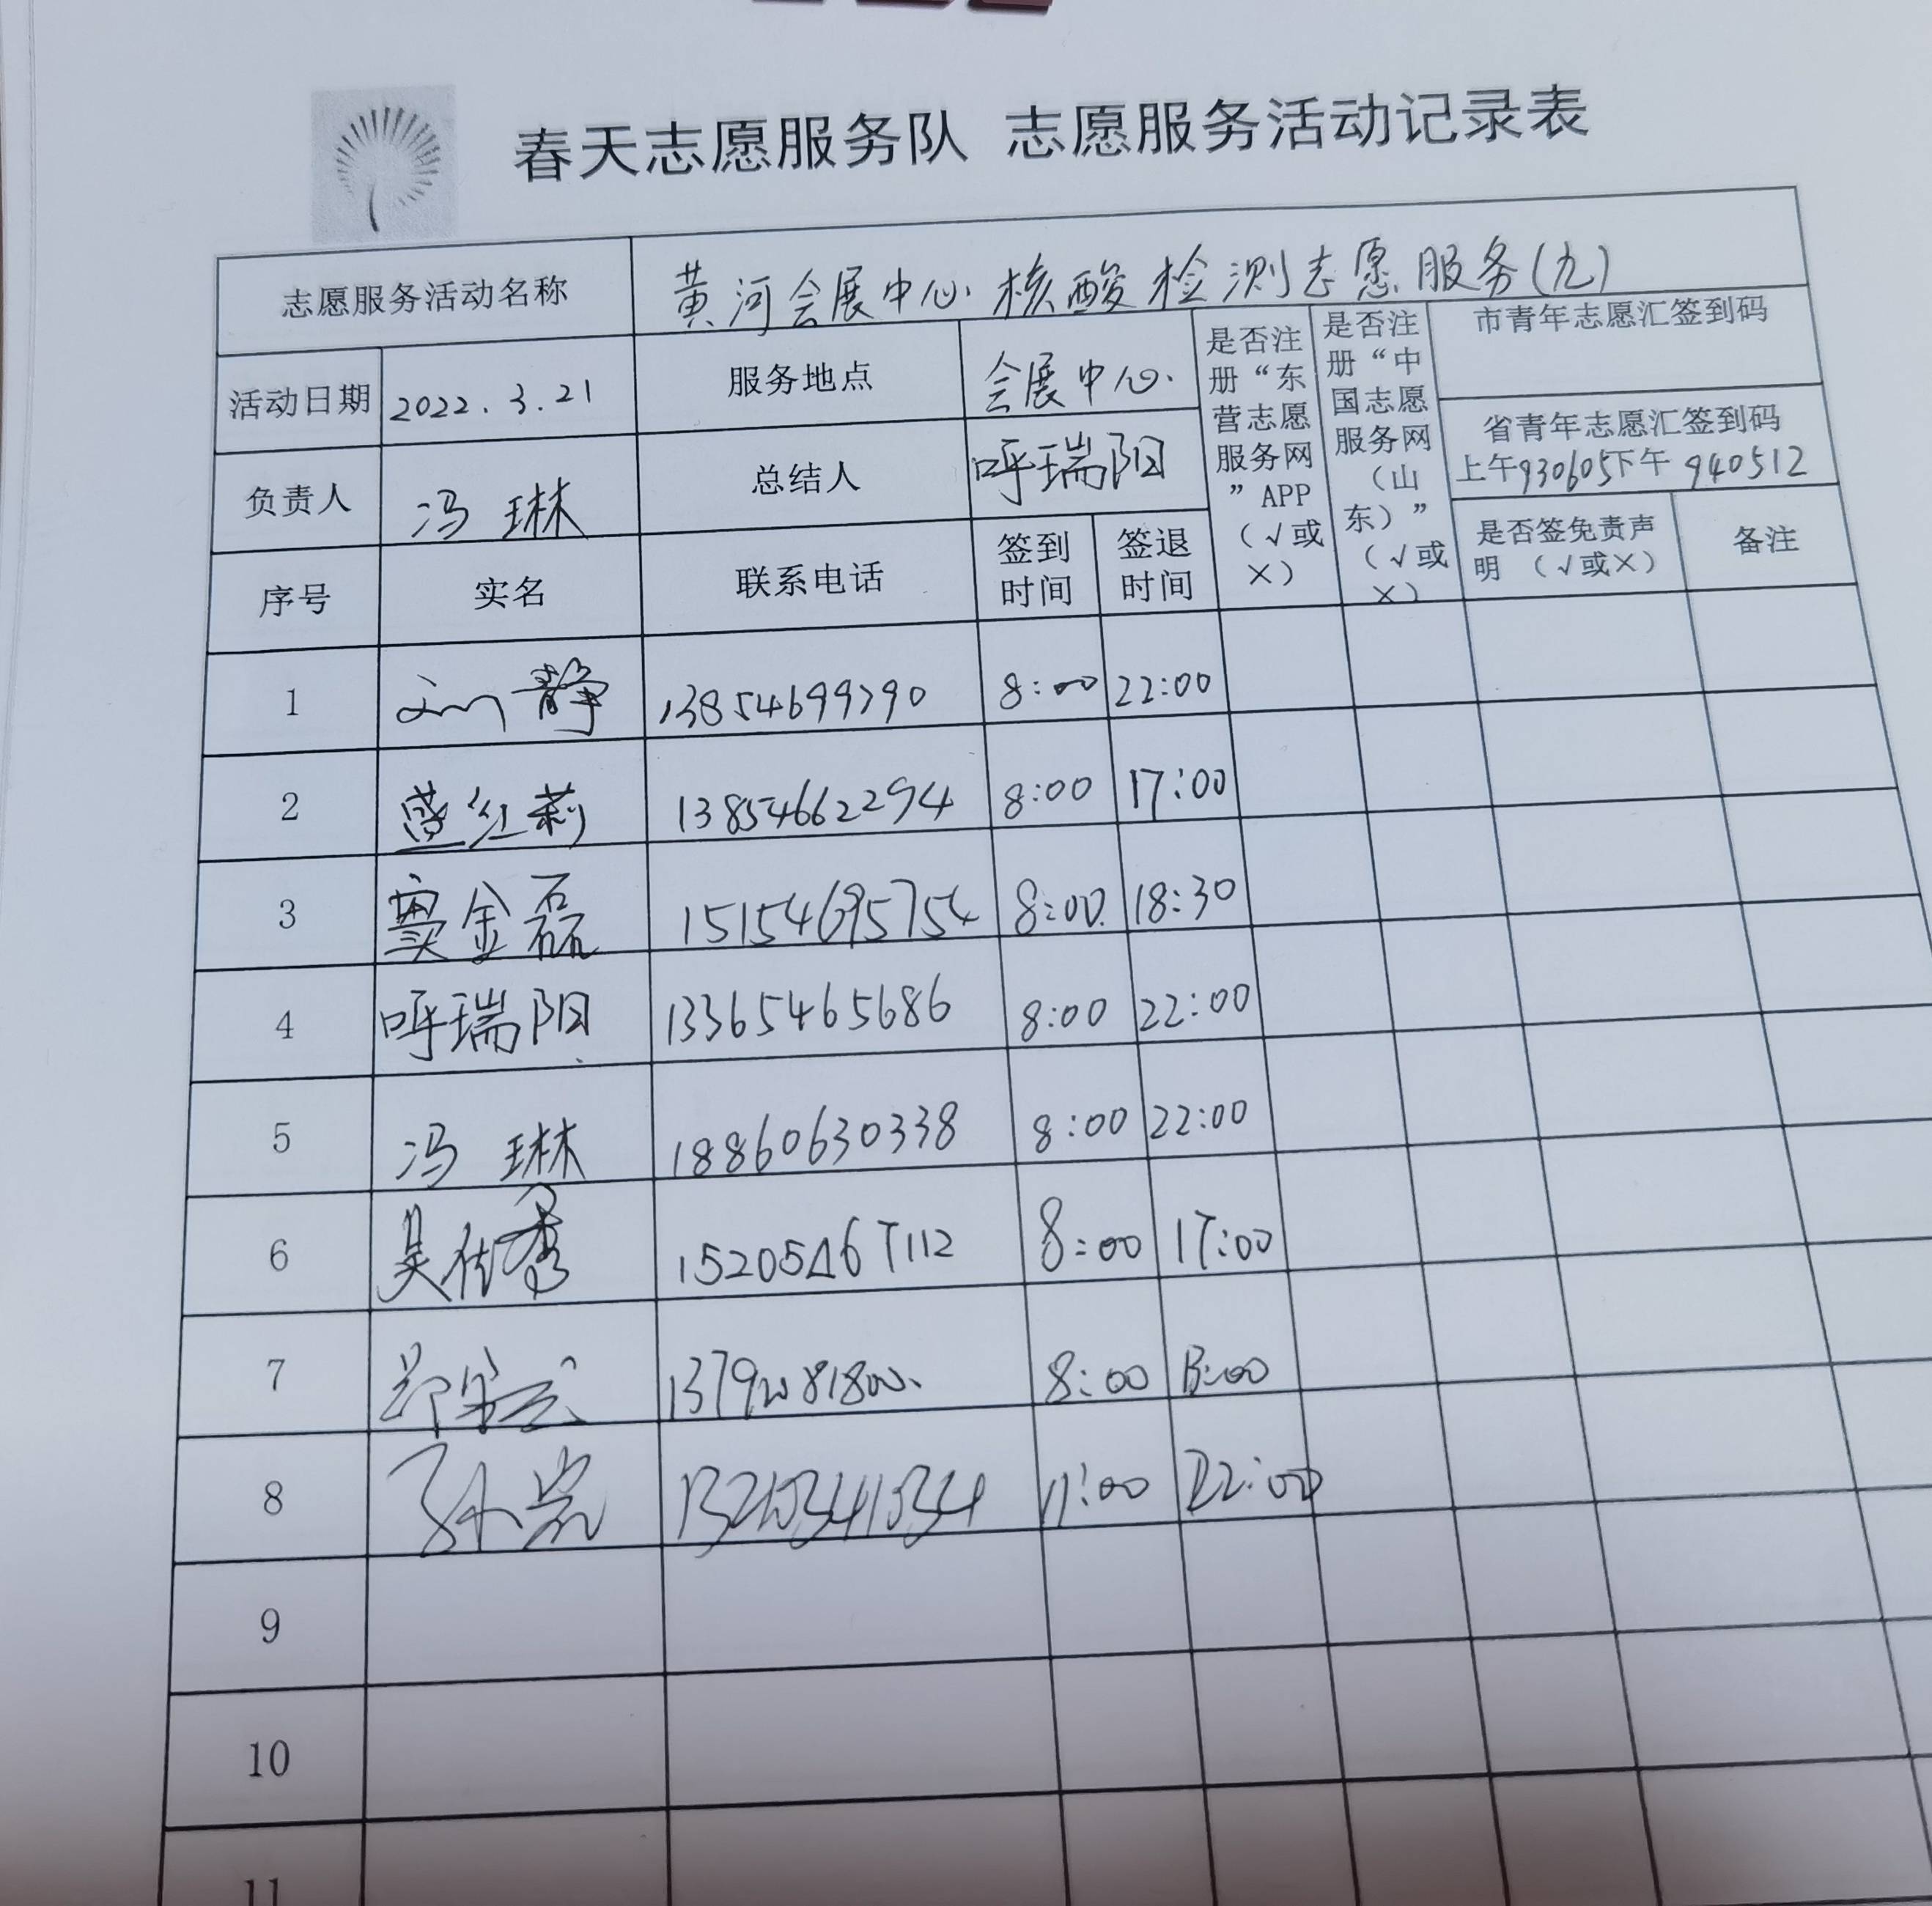 春天志愿服务队 志愿服务活动记录表
志愿服务活动名称 黄河会展中心核酸检测志愿服务(九)
活动日期 2022.3.21 服务地点 会展中心
是否注册“东营志愿服务网”APP（√或×）
是否注册“中国志愿服务网（山东）”（√或×）
市青年志愿汇签到码
省青年志愿汇签到码
上午930605下午940512
负责人 冯琳 总结人 呼瑞阳
序号 实名 联系电话 签到时间 签退时间 是否签免责声明（√或×） 备注
1 刘静 13854699790 8:00 22:00
2 红莉 13854662294 8:00 17:00
3 窦金磊 15154695754 8:00 18:30
4 呼瑞阳 13365465686 8:00 22:00
5 冯琳 18860630338 8:00 22:00
6 吴秀 15205467112 8:00 17:00
7 8:00
8 孙 11:00 22:00
9
10
11